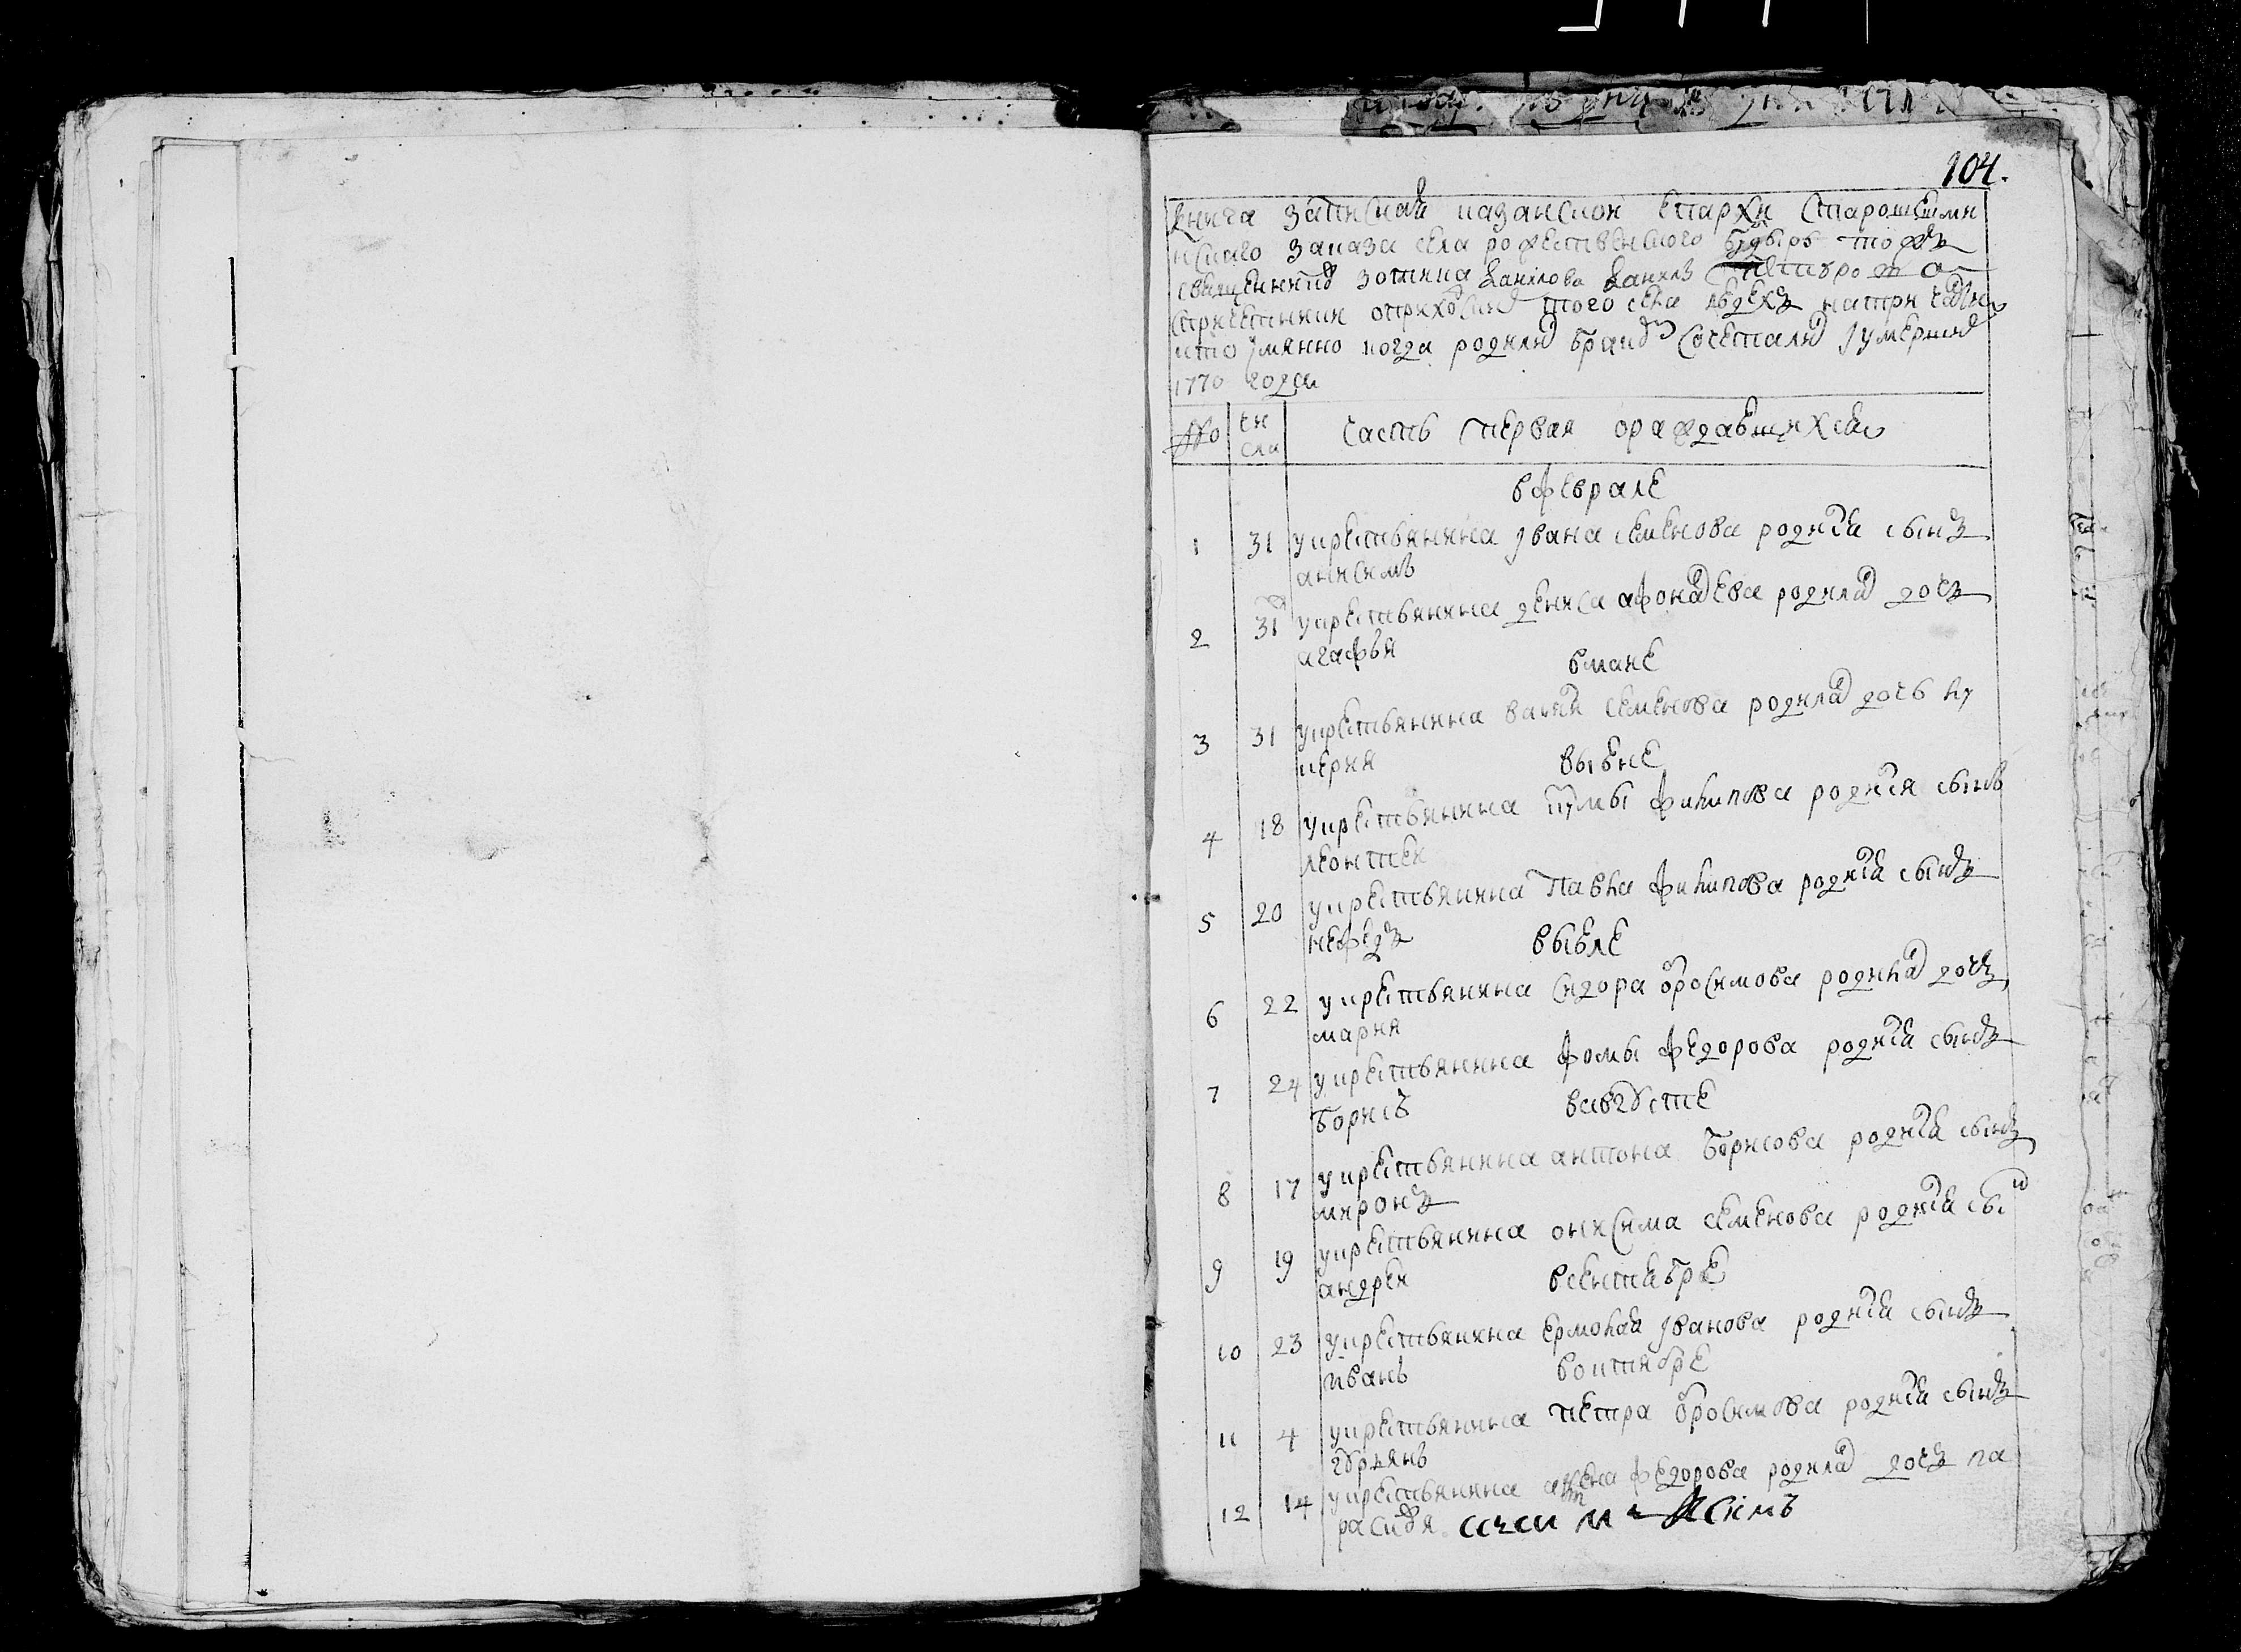 104.
книга записная казанской епархи старошешми
нского заказа села рожественского тожъ
священника Данилова
причетники оприходе того села людехъ натри части
кто имянно когда родился бракомъ сочетался и умерших
1770 годси
№ чи
сла
часть первая ораждавшихся
вфеврале
1 31 укрестьянина Ивана семенова родился сынъ
анисимъ
2 31 укрестьянина дениса афонасева родилась дочъ
агафья
вмаие
3 31 укрестьянина семенова родилась дочь лу
керия
выюне
4 18 укрестьянина кузмы филипова родился сынъ
леонтеи
5 20 укрестьянина павла филипова родился сынъ
нефедъ
выюле
6 22 укрестьянина сидора оросимова родилась дочъ
мария
7 24 укрестьянина фомы федорова родился сынъ
борисъ
вавгусте
8 17 укрестьянина антона борисова родился сынъ
миронъ
9 19 укрестьянина онисима семенова родился сынъ
андреи
всентебре
10 23 укрестьянина ермолая Иванова родился сынъ
иванъ
воктябре
11 4 укрестьянина петра оросимова родился сынъ
гурьянъ
12 14 укрестьянина федорова родилась дочъ па
раскувя